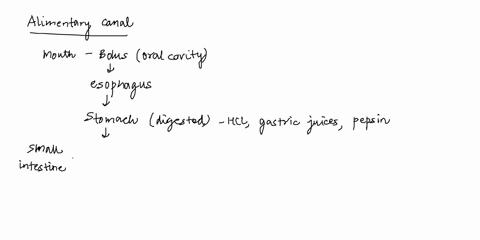 Alimentary canal
Mouth - Bolus (oral cavity)
↓
esophagus
↓
Stomach (digested) - HCl, gastric juices, pepsin
↓
small
intestine